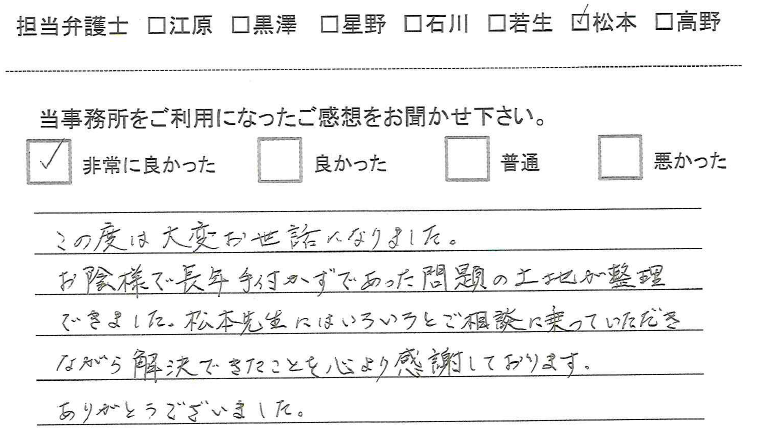 担当弁護士 □江原 □黒澤 □星野 □石川 □若生 ☑松本 □高野
当事務所をご利用になったご感想をお聞かせ下さい。
☑ 非常に良かった □ 良かった □ 普通 □ 悪かった
この度は大変お世話になりました。
お陰様で長年手付かずであった問題の土地が整理
できました。松本先生にはいろいろとご相談に乗っていただき
ながら解決できたことを心より感謝しております。
ありがとうございました。